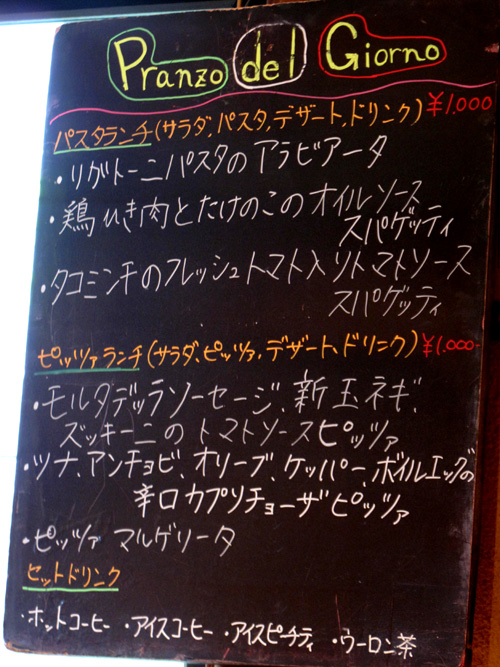 Pranzo del Giorno
パスタランチ(サラダ,パスタ,デザート,ドリンク) ¥1.000
・リガトーニパスタのアラビアータ
・鶏ひき肉とたけのこのオイルソース
スパゲッティ
・タコミンチのフレッシュトマト入りトマトソース
スパゲッティ
ピッツァランチ(サラダ、ピッツァ,デザート、ドリンク) ¥1.000-
・モルタデッラソーセージ、新玉ネギ、
ズッキーニのトマトソースピッツァ
・ツナ、アンチョビ、オリーブ、ケッパー、ボイルエッグの
辛口カプリチョーザピッツァ
・ピッツァ マルゲリータ
セットドリンク
・ホットコーヒー ・アイスコーヒー ・アイスピーチティ ・ウーロン茶